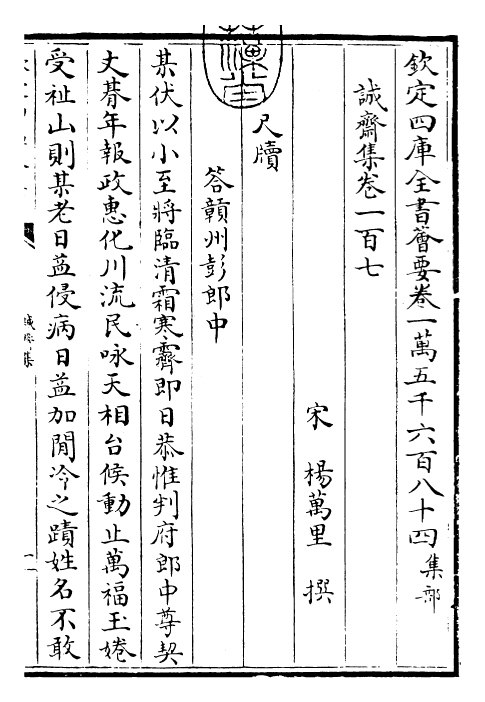 欽定四庫全書薈要卷一萬五千六百八十四集部
誠齋集卷一百七
宋　楊萬里　撰
尺牘
答贛州彭郎中
某伏以小至將臨清霜寒霽即日恭惟判府郎中尊契
丈朞年報政惠化川流民咏天相台候動止萬福玉婘
受祉山則某老日益侵病日益加閒冷之蹟姓名不敢
誠齋集